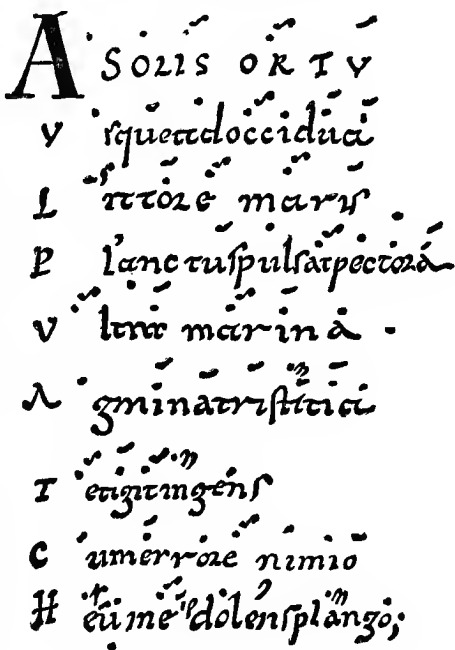 A SOLIS ORTV
Vsqueadoccidua
Littore maris
Planctuspulsatpectora
Vltra marina .
Agminatristitia
Tetigitingens
Cumerrore nimio
Heu me dolensplango;